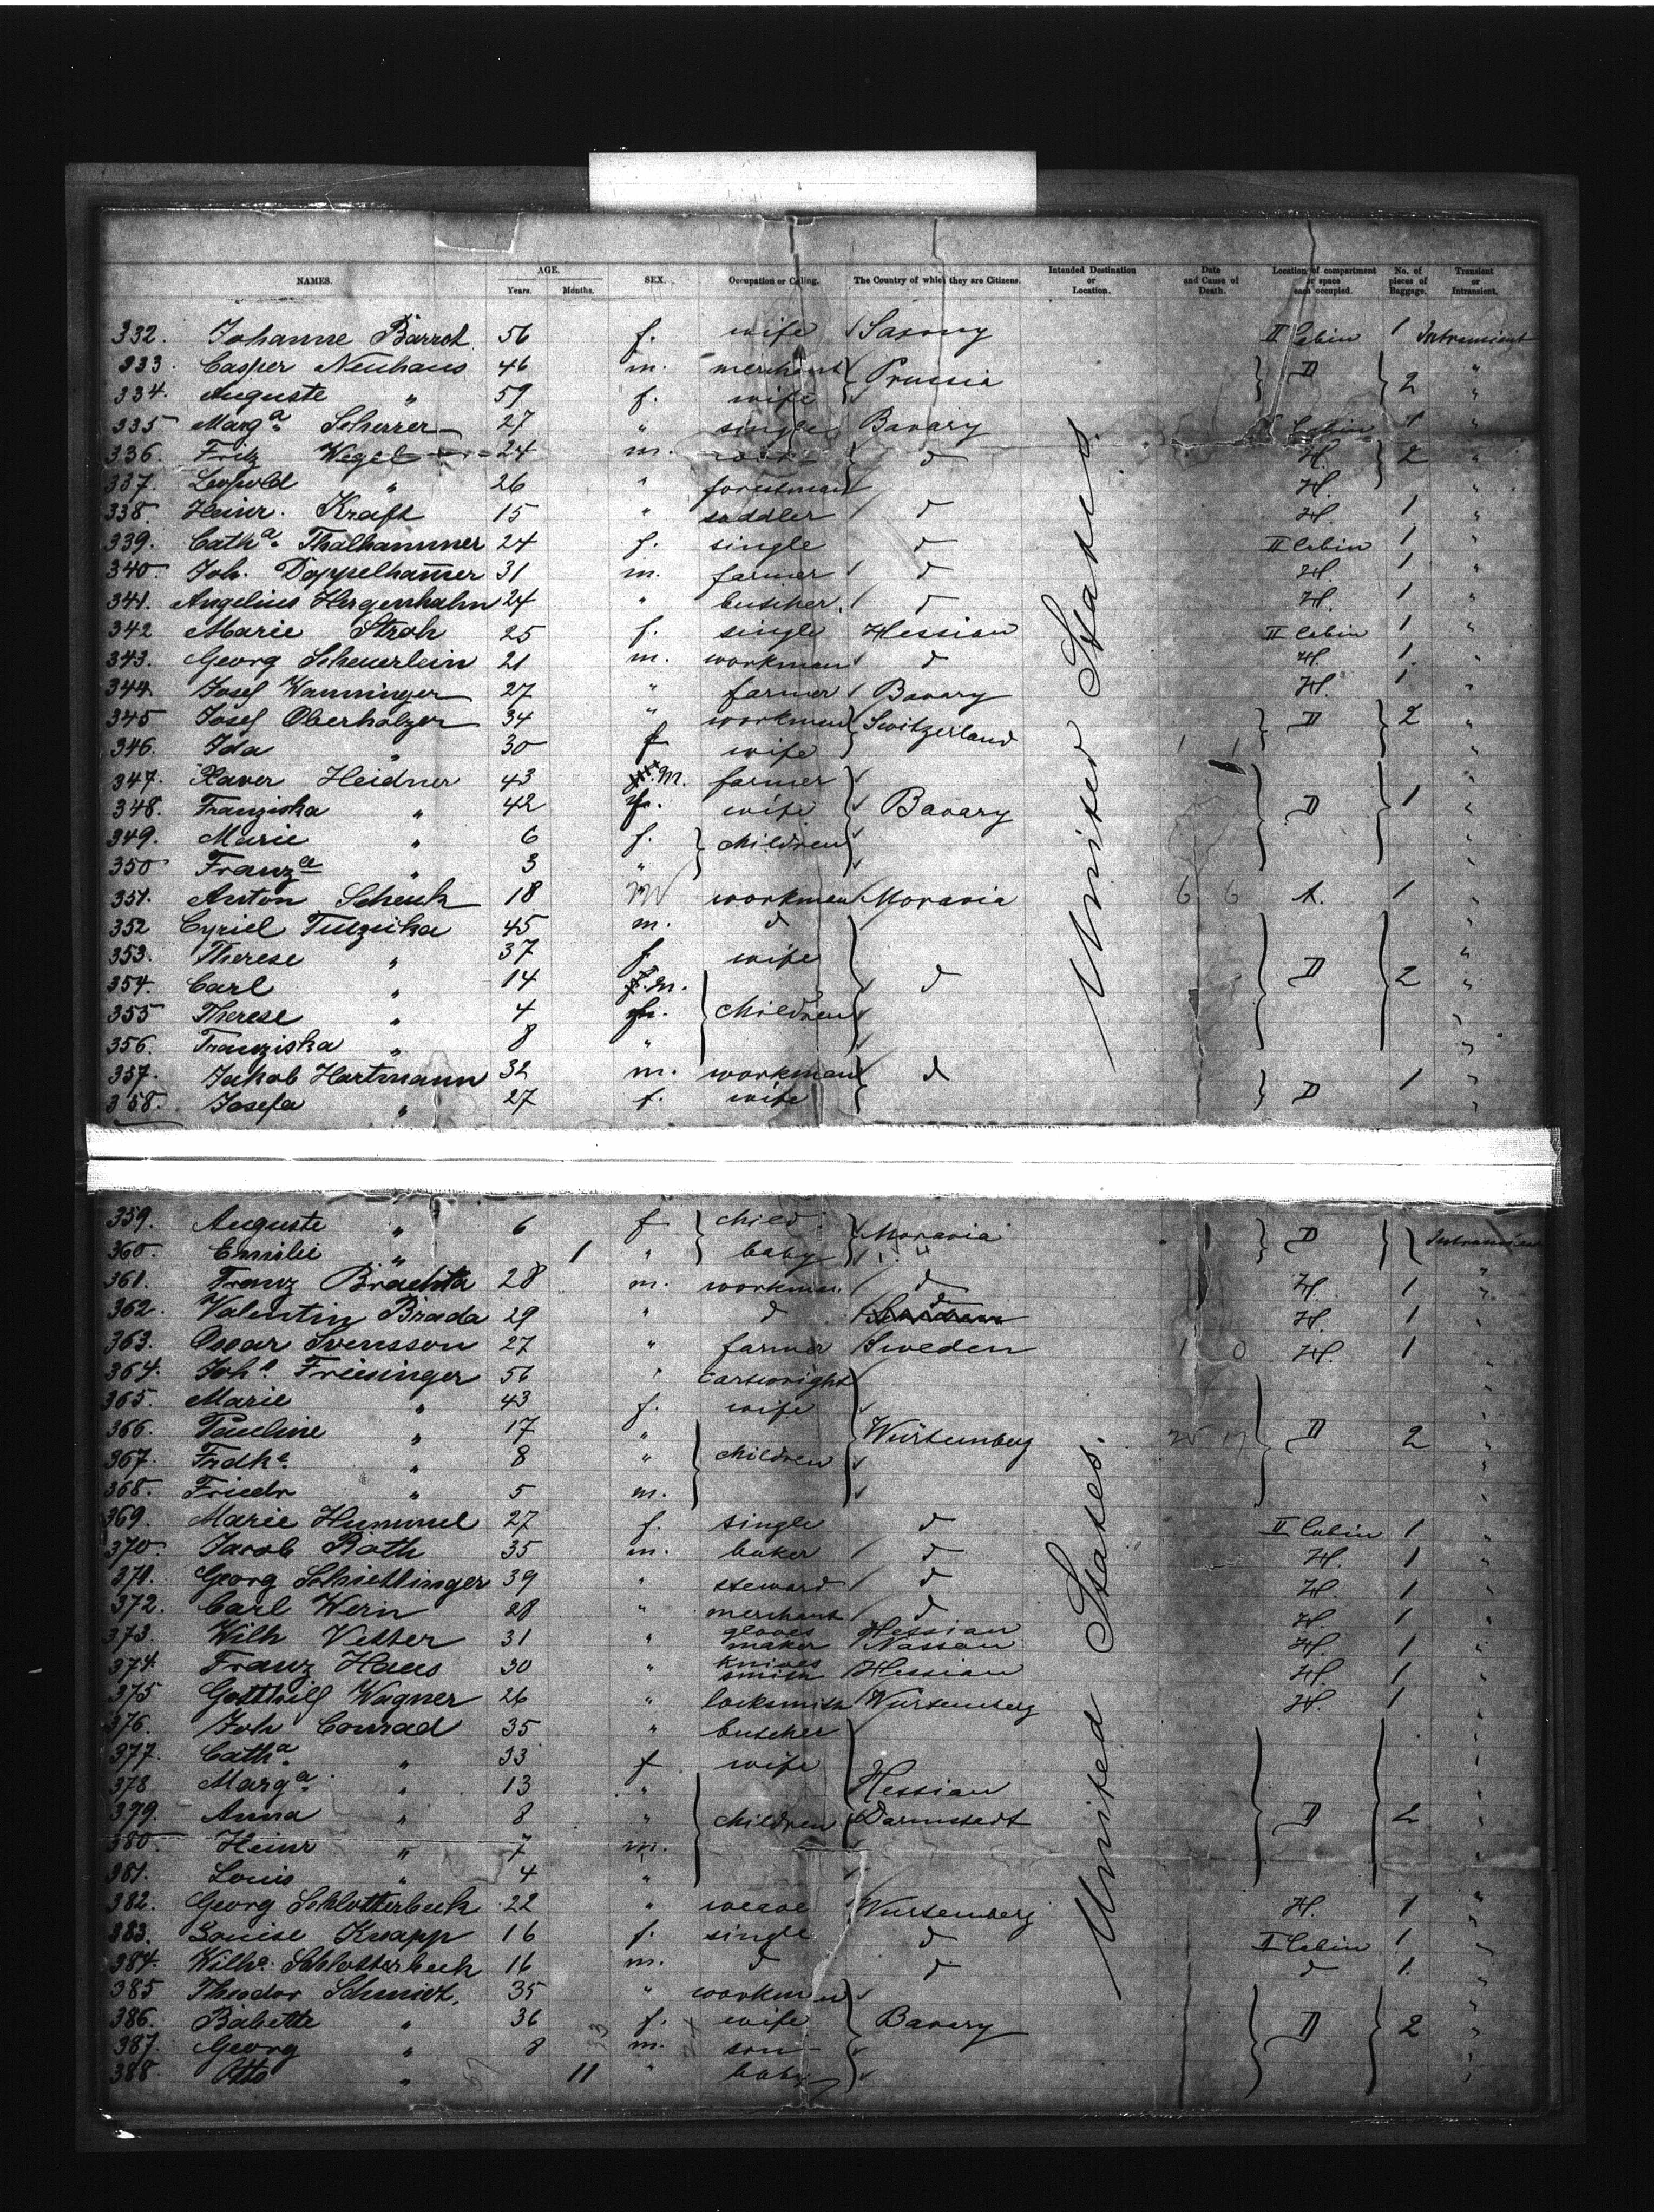 NAMES. AGE. Years. Months. SEX. Occupation or Calling. The Country of which they are Citizens. Intended Destination or Location. Date and Cause of Death. Location of compartment or space each occupied. No. of pieces of Baggage. Transient or Intransient.
332. Johanne Barrot 56 f. wife Saxony II Cabin 1 Intransient
333. Casper Neuhaus 46 m. merchant Prussia D 2 "
334. Auguste " 59 f. wife "
335 Marg.a Scherrer 27 " single Bavary Cabin 1 "
336. Fritz Wegel 24 m. d H. 2 "
337. Leopold " 26 " forestman H. "
338. Heinr. Kraft 15 " saddler d H. 1 "
339. Cath.a Thalhammer 24 f. single d II Cabin 1 "
340. Joh. Doppelham̄er 31 m. farmer d H. 1 "
341. Angelius Hergenhahn 24 " butcher. d H. 1 "
342 Marie Stroh 25 f. single Hessian II Cabin 1 "
343. Georg Scheuerlein 21 m. workman d H. 1. "
344. Josef Wanninger 27 " farmer Bavary H. 1 "
345 Josef Oberholzer 34 " workman Switzerland D 2 "
346. Ida " 30 f wife 1 1 "
347. Xaver Heidner 43 m. farmer "
348. Franziska " 42 f. wife Bavary D 1 "
349. Marie " 6 f. children "
350 Franz.a " 3 " "
351. Anton Schenk 18 m workman Moravia 6 6 A. 1 "
352 Cyriel Tuczicka 45 m. d "
353. Therese " 37 f wife "
354. Carl " 14 m. d D 2 "
355 Therese " 4 f. children "
356. Franziska " 8 " "
357. Jakob Hartmann 32 m. workman d 1 "
358. Josefa " 27 f. wife D "
United States.
359. Auguste " 6 f child Moravia D Intransient
360. Emilie " 1 " baby " "
361. Franz Brachta 28 m. workman d H. 1 "
362. Valentin Brada 29 " d d H. 1 "
363. Oscar Svensson 27 " farmer Sweden 1 0 H. 1 "
364. Joh.s Friesinger 56 " cartwright "
365. Marie " 43 f. wife "
366. Pauline " 17 " Würtemberg D 2 "
367. Frdke. " 8 " children "
368. Friedr " 5 m. "
369. Marie Hummel 27 f. single d II Cabin 1 "
370. Jacob Roth 35 m. baker d H. 1 "
371. Georg Schietlinger 39 " steward d H. 1 "
372. Carl Wern 28 " merchant d H. 1 "
373. Wilh Vetter 31 " gloves maker Hessian Nassau H. 1 "
374. Franz Haus 30 " knives smith Hessian H. 1 "
375 Gotthilf Wagner 26 " locksmith Würtemberg H. 1 "
376. Joh Conrad 35 " butcher "
377. Cath.a " 33 f wife "
378 Marg.a " 13 " Hessian "
379. Anna " 8 " children Darmstadt D 2 "
380 Heinr " 7 m. "
381. Louis " 4 " "
382. Georg Schlotterbeck 22 " weave Wurtemberg H. 1 "
383. Louise Knapp 16 f. single d II Cabin 1 "
384. Wilhe. Schlotterbeck 16 m. d d d 1 "
385 Theodor Schmidt. 35 " workman "
386. Babette " 36 f. wife Bavary D 2 "
387. Georg " 8 m. son "
388. Otto " 11 " baby "
United States.